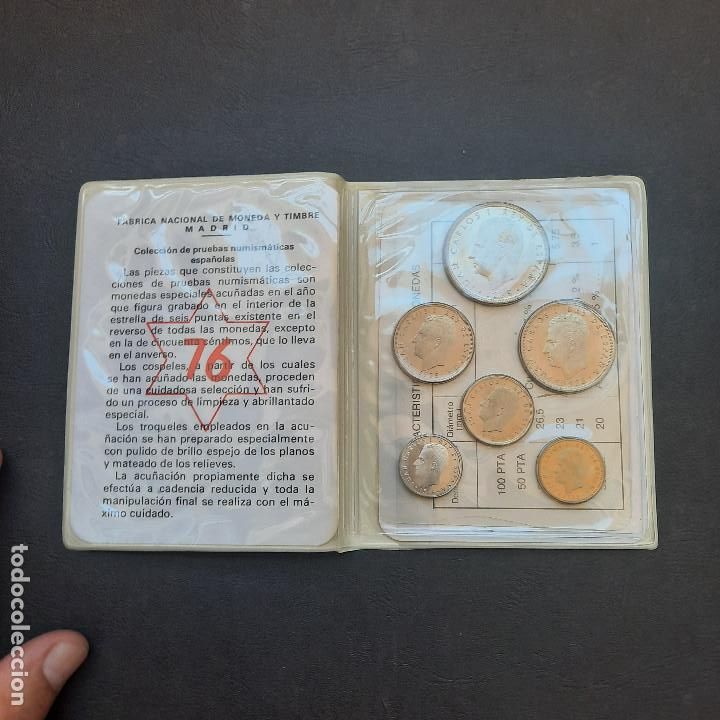 FABRICA NACIONAL DE MONEDA Y TIMBRE
MADRID
Colección de pruebas numismáticas
españolas
Las piezas que constituyen las colec-
ciones de pruebas numismáticas son
monedas especiales acuñadas en el año
que figura grabado en el interior de la
estrella de seis puntas existente en el
reverso de todas las monedas, excepto
en la de cincuenta céntimos, que lo lleva
en el anverso.
Los cospeles, a partir de los cuales
se han acuñado las monedas, proceden
de una cuidadosa selección y han sufri-
do un proceso de limpieza y abrillantado
especial.
Los troqueles empleados en la acu-
ñación se han preparado especialmente
con pulido de brillo espejo de los planos
y mateado de los relieves.
La acuñación propiamente dicha se
efectúa a cadencia reducida y toda la
manipulación final se realiza con el má-
ximo cuidado.
76
CARLOS I
MONEDAS
Diámetro
26,5
23
21
20
100 PTA
50 PTA
todocoleccion